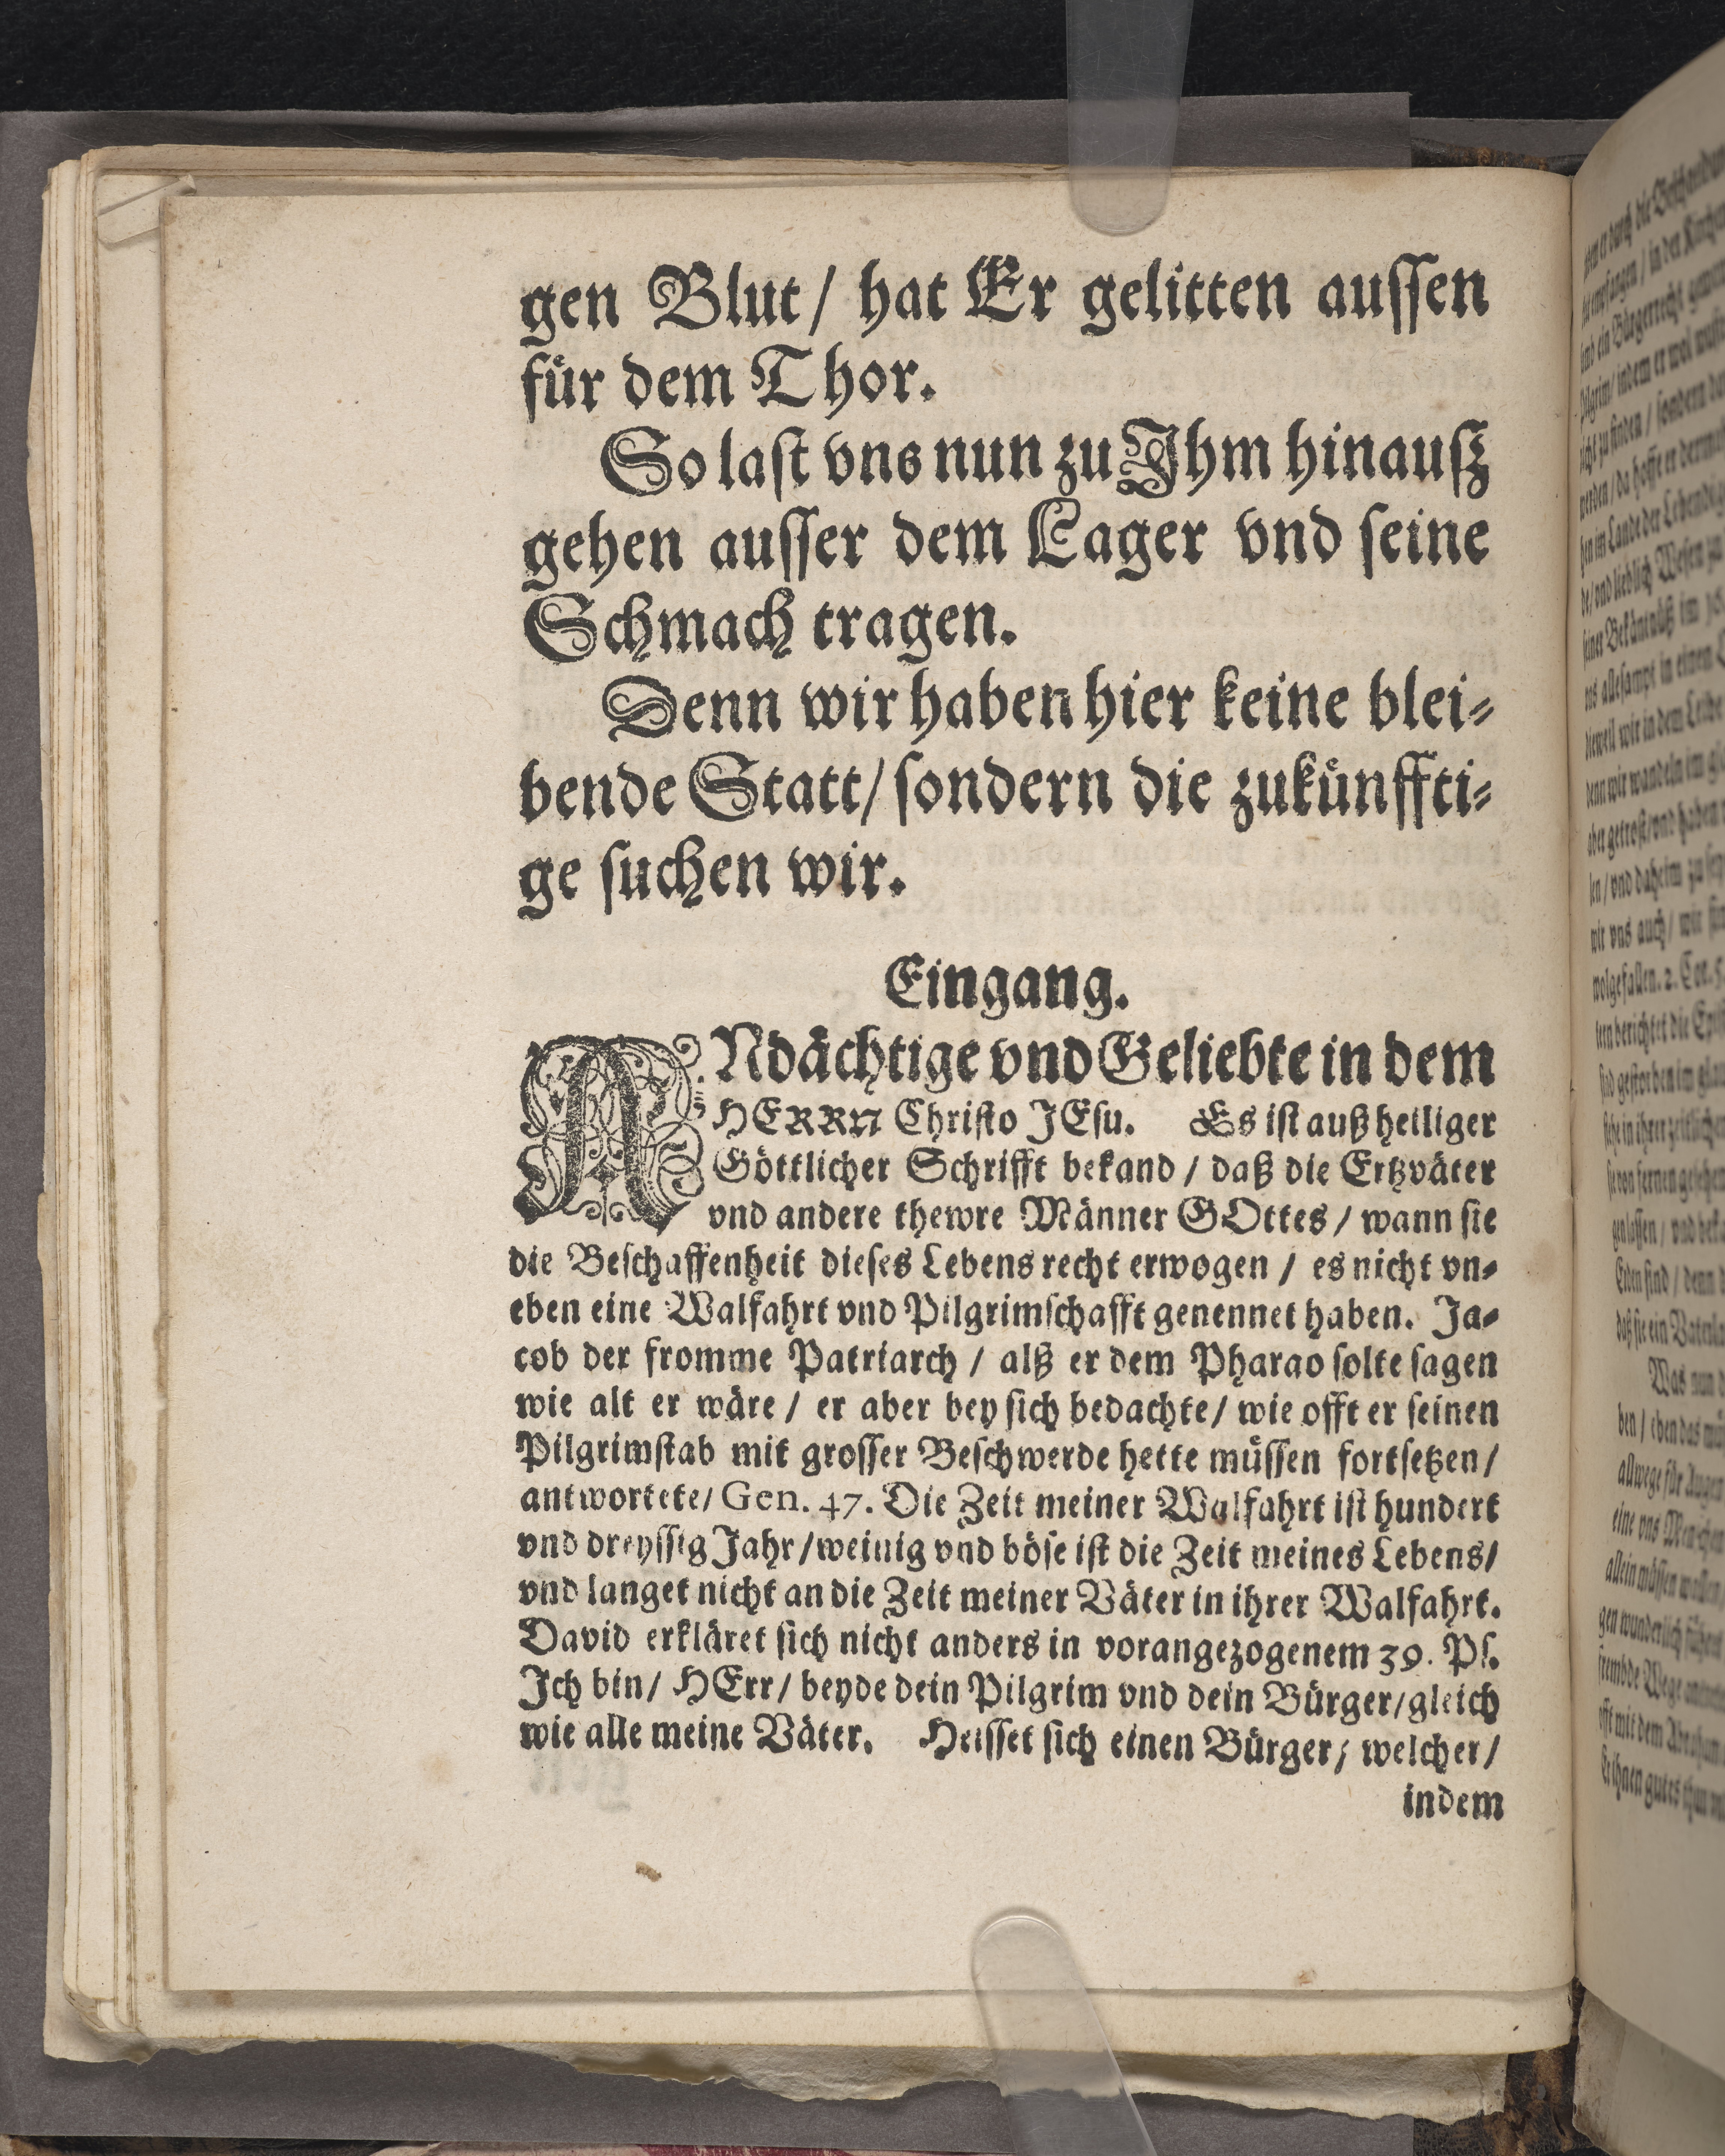 gen Blut/ hat Er gelitten auſſen
fuͤr dem Thor.
So laſt vns nun zu Ihm hinauſz
gehen auſſer dem Lager vnd ſeine
Schmach tragen.
Denn wir haben hier keine blei⸗
bende Statt/ ſondern die zukuͤnffti⸗
ge ſuchen wir.
Eingang.
ANdaͤchtige vnd Geliebte in dem
HERRN Chriſto JEſu. Es iſt auß heiliger
Goͤttlicher Schrifft bekand / daß die Ertzvaͤter
vnd andere thewre Maͤnner GOttes / wann ſie
die Beſchaffenheit dieſes Lebens recht erwogen / es nicht vn⸗
eben eine Walfahrt vnd Pilgrimſchafft genennet haben. Ja⸗
cob der fromme Patriarch / alß er dem Pharao ſolte ſagen
wie alt er waͤre / er aber bey ſich bedachte/ wie offt er ſeinen
Pilgrimſtab mit groſſer Beſchwerde hette muͤſſen fortſetzen/
antwortete/ Gen. 47. Die Zeit meiner Walfahrt iſt hundert
vnd dreyſſig Jahr/ weinig vnd boͤſe iſt die Zeit meines Lebens/
vnd langet nicht an die Zeit meiner Vaͤter in ihrer Walfahrt.
David erklaͤret ſich nicht anders in vorangezogenem 39. Pſ.
Ich bin/ HErr/ beyde dein Pilgrim vnd dein Buͤrger/ gleich
wie alle meine Vaͤter. Heiſſet ſich einen Buͤrger; welcher/
indem